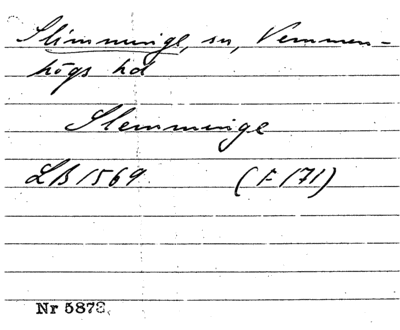 Slimminge, sn, Vemmen-
högs hd
Slemminge
LB 1569 (F 171)
Nr 5873.